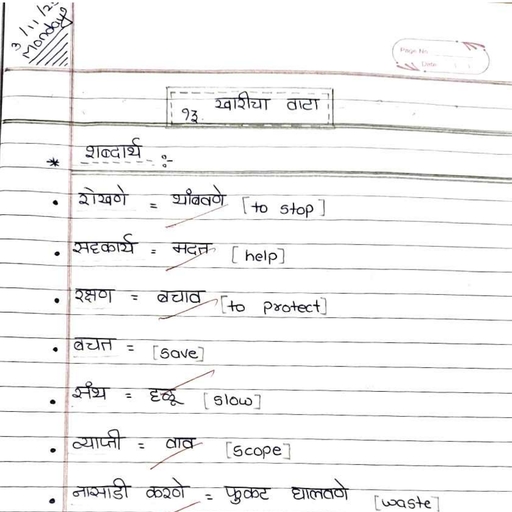 3/11/2
Monday
Page No.
Date
१३. खारीचा वाटा
* शब्दार्थ :-
• रोखणे = थांबवणे [to stop]
• सहकार्य = मदत [help]
• रक्षण = बचाव [to protect]
• बचत = [save]
• संथ = हळू [slow]
• व्याप्ती = वाव [scope]
• नासाडी करणे = फुकट घालवणे [waste]